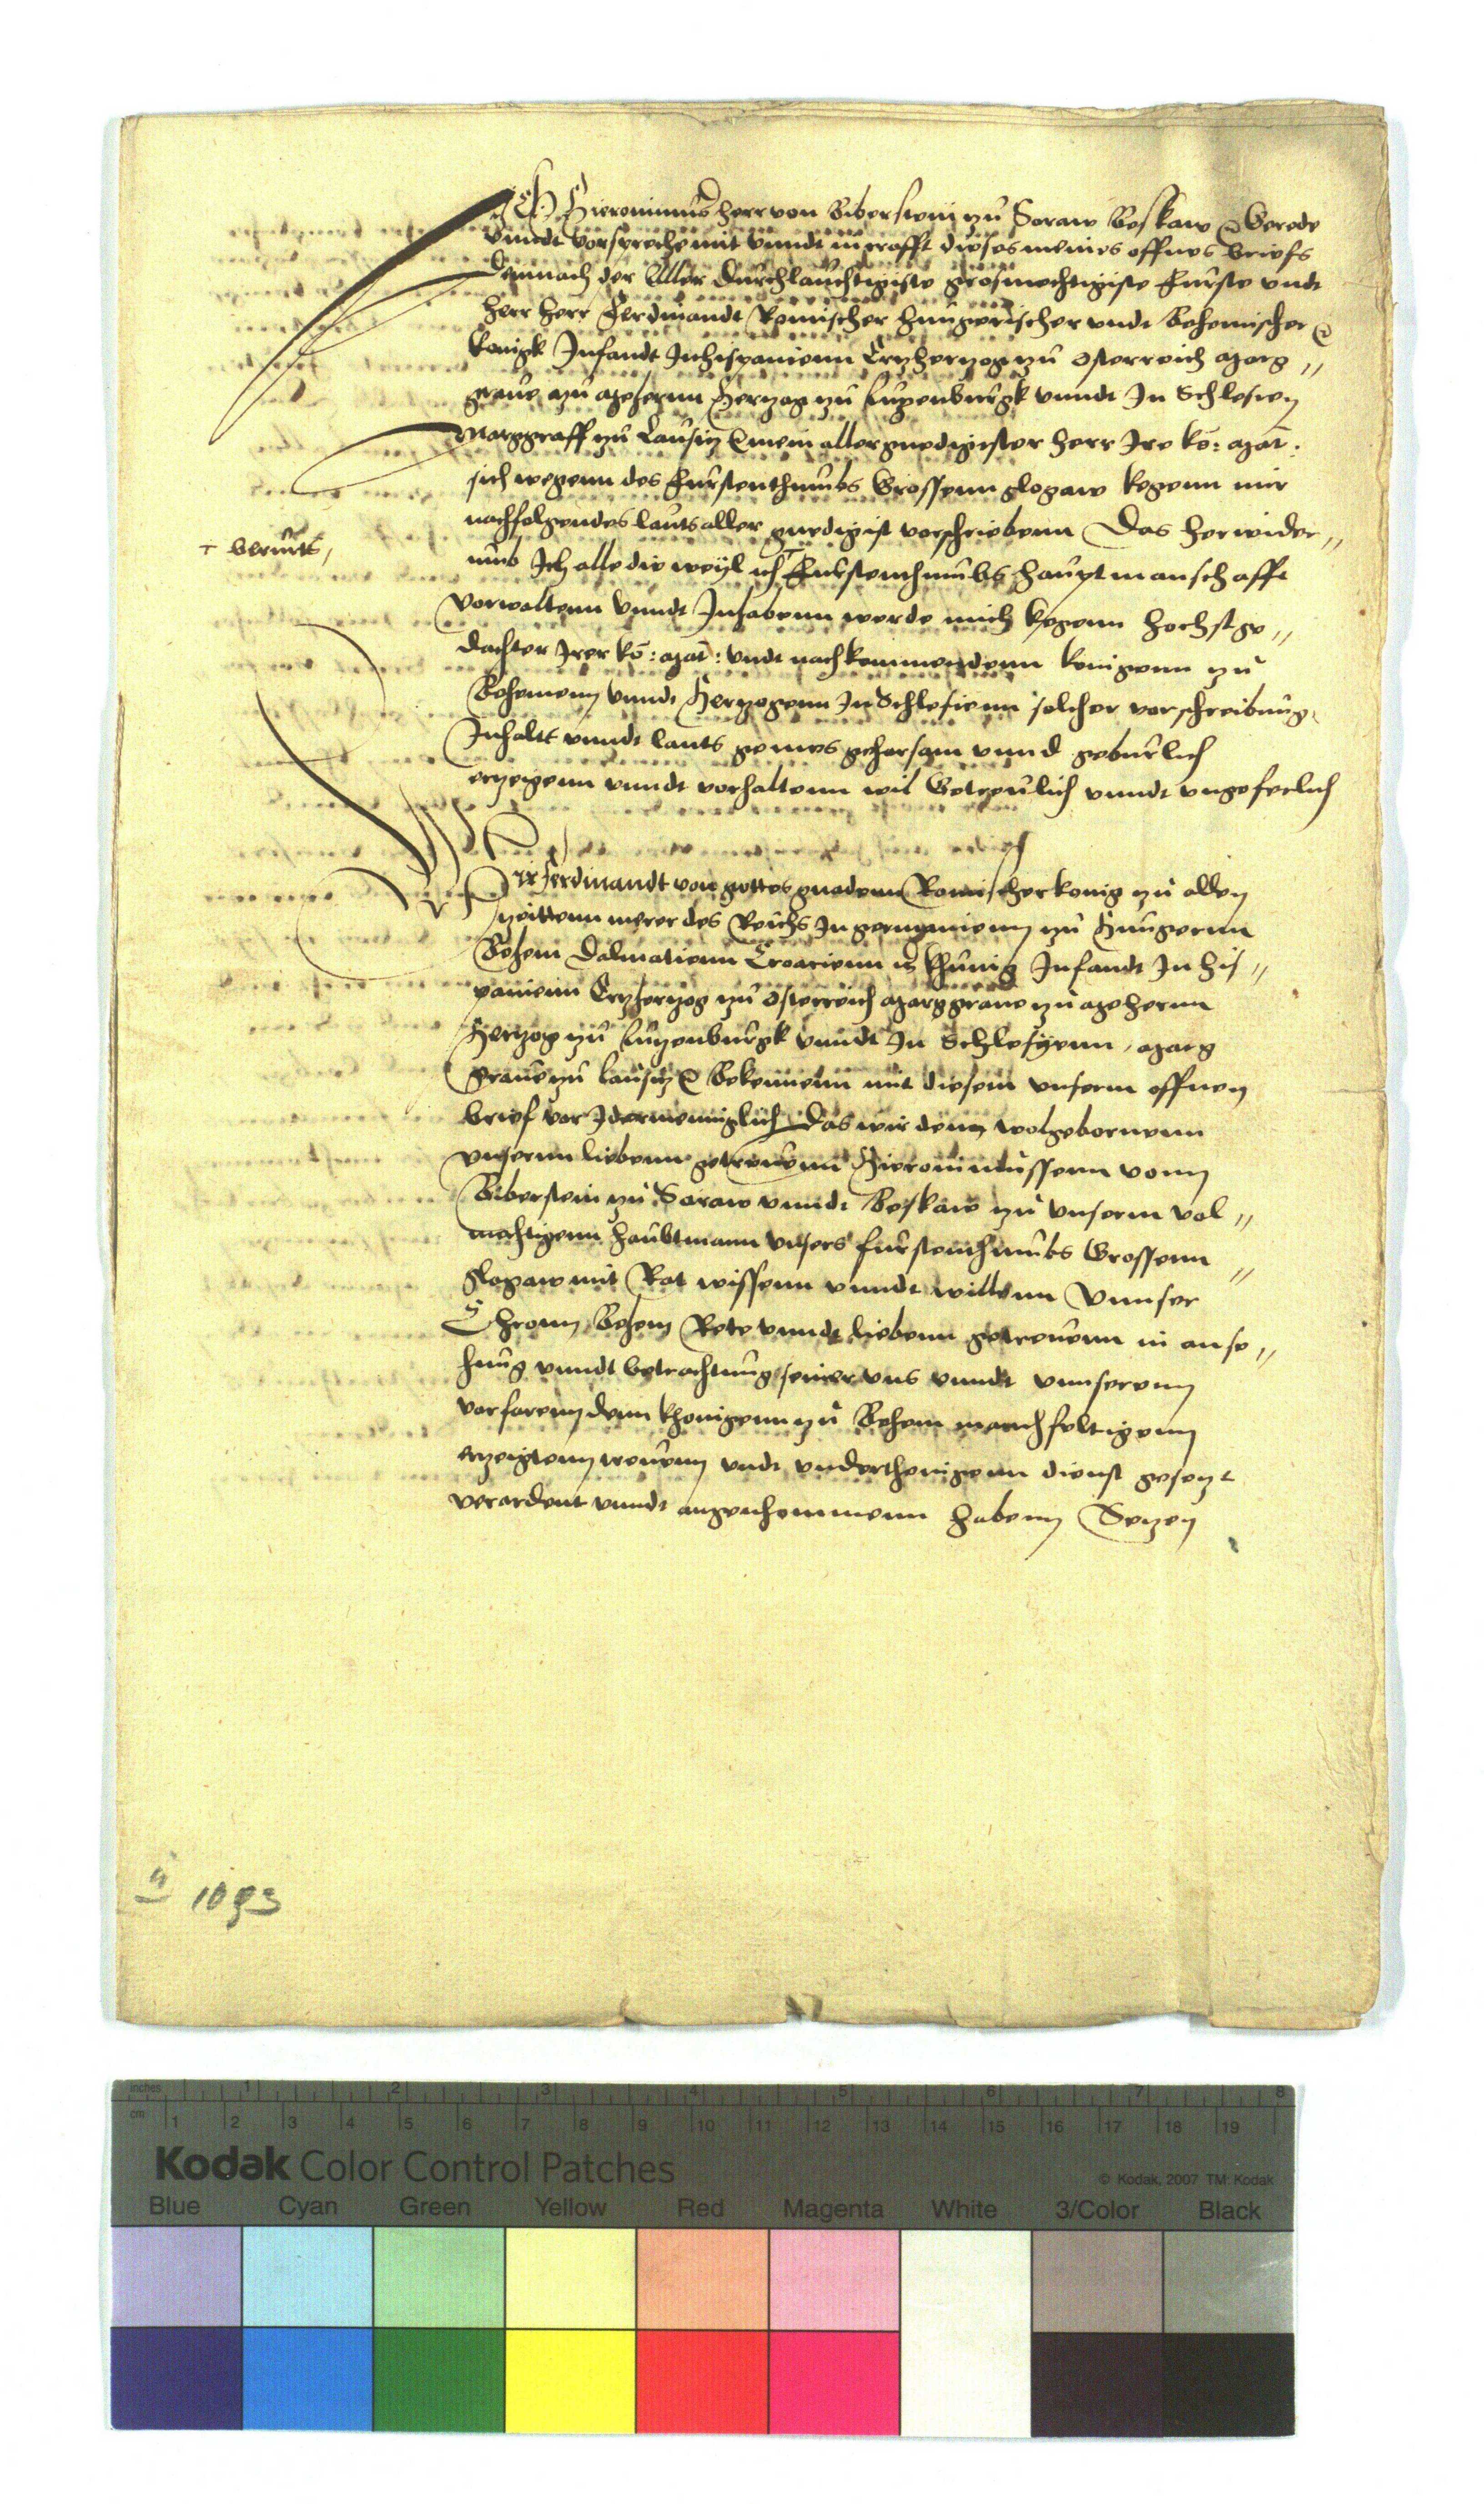 ICH Hieronimus herr von Biberstein zu Soraw Beskaw Gerede
vnndt vorspreche mit vnndt in crafft dieses meines offnes briefs
Demnach der Aller Durchlauchtigiste grosmechtigiste Furste vndt
herr herr Ferdinandt Romischer hungerischer vndt Behemischer
Konigk Infandt In hispanienn Ertzhertzog zu Osterreich Marg „
graue zu Mehernn Hertzog zu Lutzenburgk vnndt In Schlesien
Marggraff zu Lausitz mein allergnedigister herr Ire ko: Mat:
sich wegenn des Furstenthumbs Grossenn glogaw kegenn mir
nachfolgendes lauts aller gnedigist vorschriebenn Das herwider „
+ beruerts,
umb Ich alle die weyl ich + Furstenthumbs hauptmanschafft
vorwaltenn vnndt Inhabenn werde mich kegenn hochstge „
dachter Irer ko: Mat: vndt nachkommendenn konigenn zu
Behemenn vnndt Hertzogenn In Schlesienn solcher vorschreibung
Inhalts vnndt lauts gemes gehorsam vnnd geburlich
erzeigenn vnndt vorhaltenn wil Getreulich vnndt vngeferlich
Wir Ferdinandt von gottes gnadenn Romischer konig zu allen
zeittenn merer des Reichs In germanienn zu Hungernn
Behem Dalmatienn Croacienn khunig Infandt In his „
panienn Ertzhertzog zu Osterreich Marggraue zu Mehernn
Hertzog zu Lutzenburgk vnndt In Schlesyenn, Marg
graue zu lausitz Bekennenn mit diesem vnserm offnen
brief vor Idermenniglich Das wir denn wolgebornenn
vnsernn liebenn getreuenn Hieronimussenn vonn
Biberstein zu Soraw vnndt Beskaw zu vnserm vol „
mechtigenn haubtmann vnsers furstenthumbs Grossenn
glogaw mit Rat wissenn vnndt willenn Vnnser „
Chronn Behem Rete vnndt liebenn getreuenn in anse „
hung vnndt betrachtung seiner vns vnndt vnnserenn
vorfarenn denn khonigenn zu Behem manchfeltigenn
erzeigtenn treuenn vndt vnderthenigenn dienst gesetzt
verordent vnndt angenhommenn habenn Setzen
1093
inches 1 2 3 4 5 6 7 8
cm 1 2 3 4 5 6 7 8 9 10 11 12 13 14 15 16 17 18 19
Kodak Color Control Patches
© Kodak, 2007 TM: Kodak
Blue Cyan Green Yellow Red Magenta White 3/Color Black